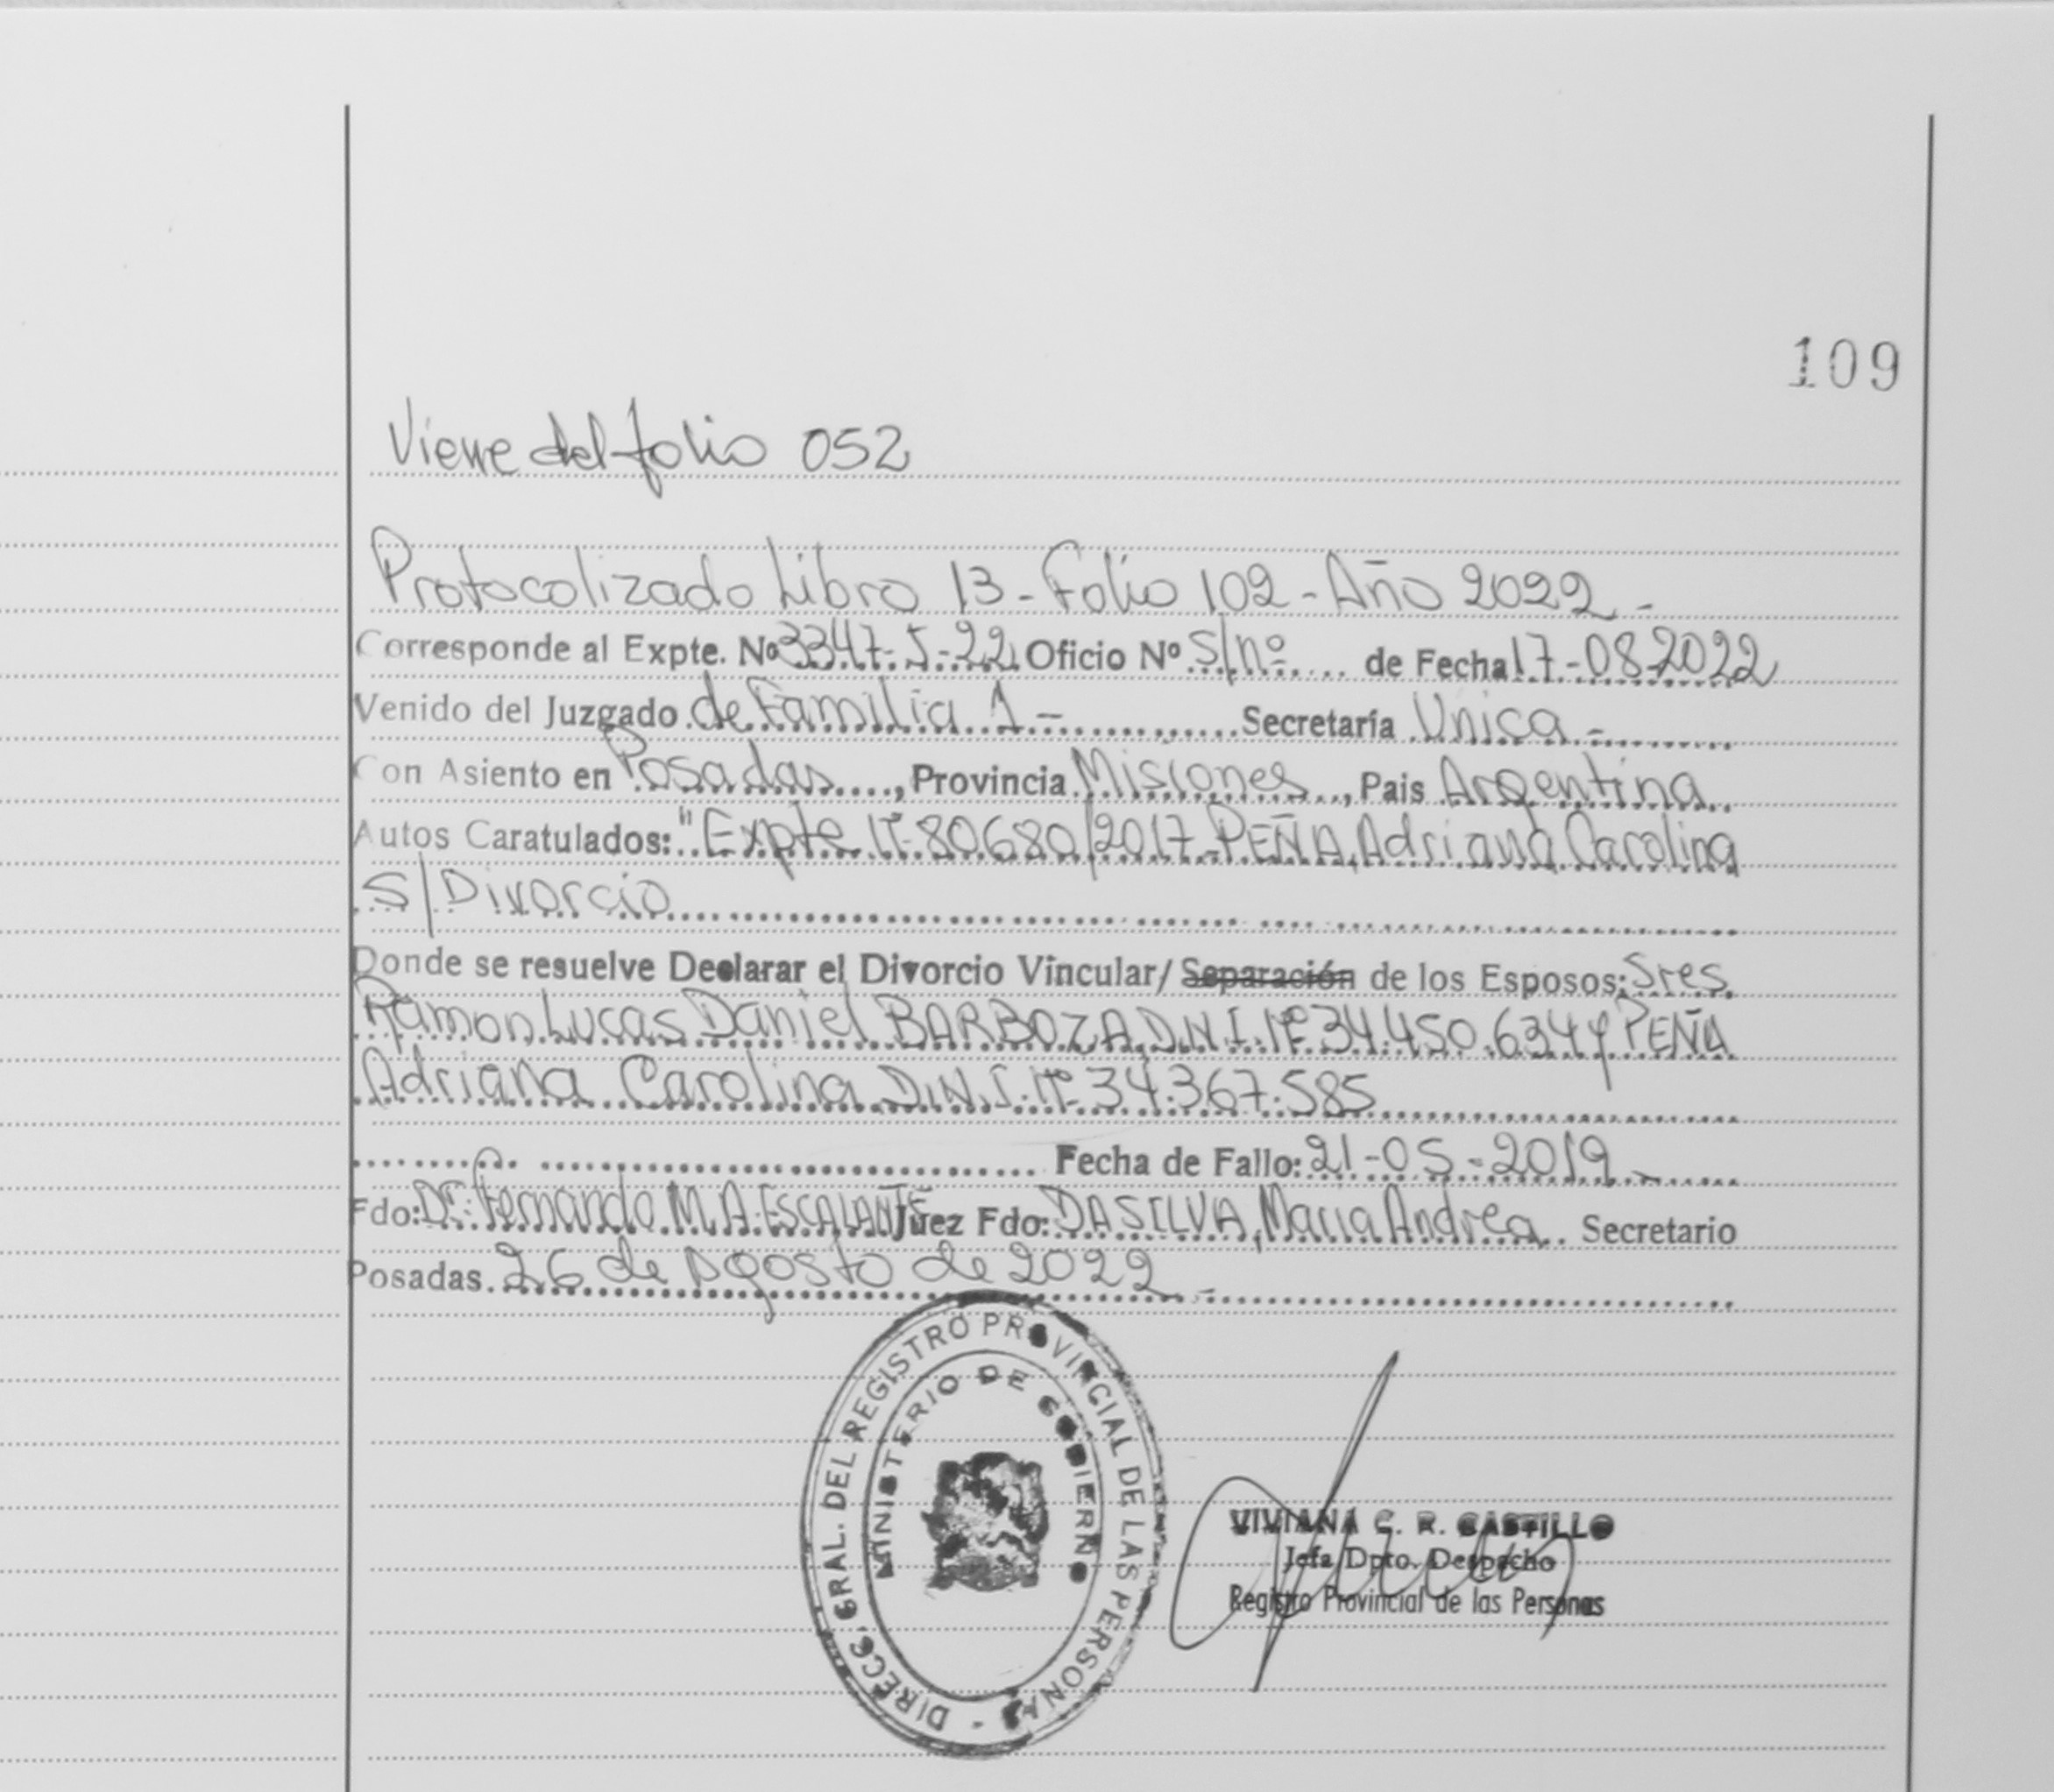 109
Viene del folio 052
Protocolizado Libro 13 - Folio 102 - Año 2022 -
Corresponde al Expte. Nº 3347-J-22 Oficio Nº S/nº de Fecha 17-08-2022
Venido del Juzgado de Familia 1 - Secretaría Unica -
Con Asiento en Posadas, Provincia Misiones, Pais Argentina
Autos Caratulados: "Expte Nº 80680/2017 - PEÑA, Adriana Carolina
S/Divorcio
Donde se resuelve Declarar el Divorcio Vincular/ Separación de los Esposos: Sres
Ramon Lucas Daniel BARBOZA, D.N.I. Nº 34.450.634 y PEÑA
Adriana Carolina D.N.I. Nº 34.367.585
Fecha de Fallo: 21-05-2019 -
Fdo: Dr. Fernando M.A. ESCALANTE Juez Fdo: DA SILVA, Maria Andrea Secretario
Posadas 26 de Agosto de 2022 -
DIRECC. GRAL. DEL REGISTRO PROVINCIAL DE LAS PERSONAS -
MINISTERIO DE GOBIERNO
VIVIANA C. R. CASTILLO
Jefa Dpto. Despacho
Registro Provincial de las Personas